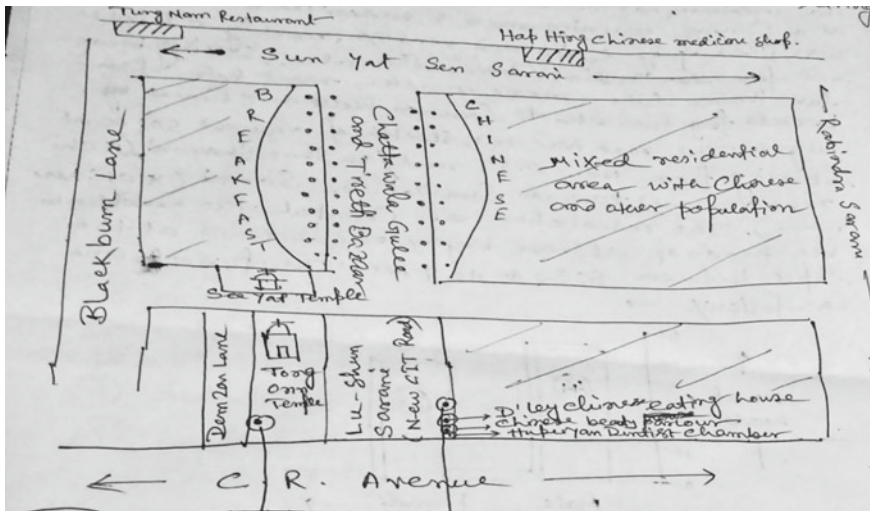 Tung Nam Restaurant
Hap Hing Chinese medicine shop.
Sun Yat Sen Sarani
Rabindra Sarani
Blackburn Lane
BREAKFAST
Chattawala Gulee
and Tiretti Bazaar
CHINESE
Mixed residential
area with Chinese
and other population
See Yat Temple
Demzen Lane
Tong
Onn
Temple
Lu-Shun
Sarani
(New CIT Road)
D'ley chinese eating house
Chinese beaty parlour
Dentist Chamber
C. R. Avenue